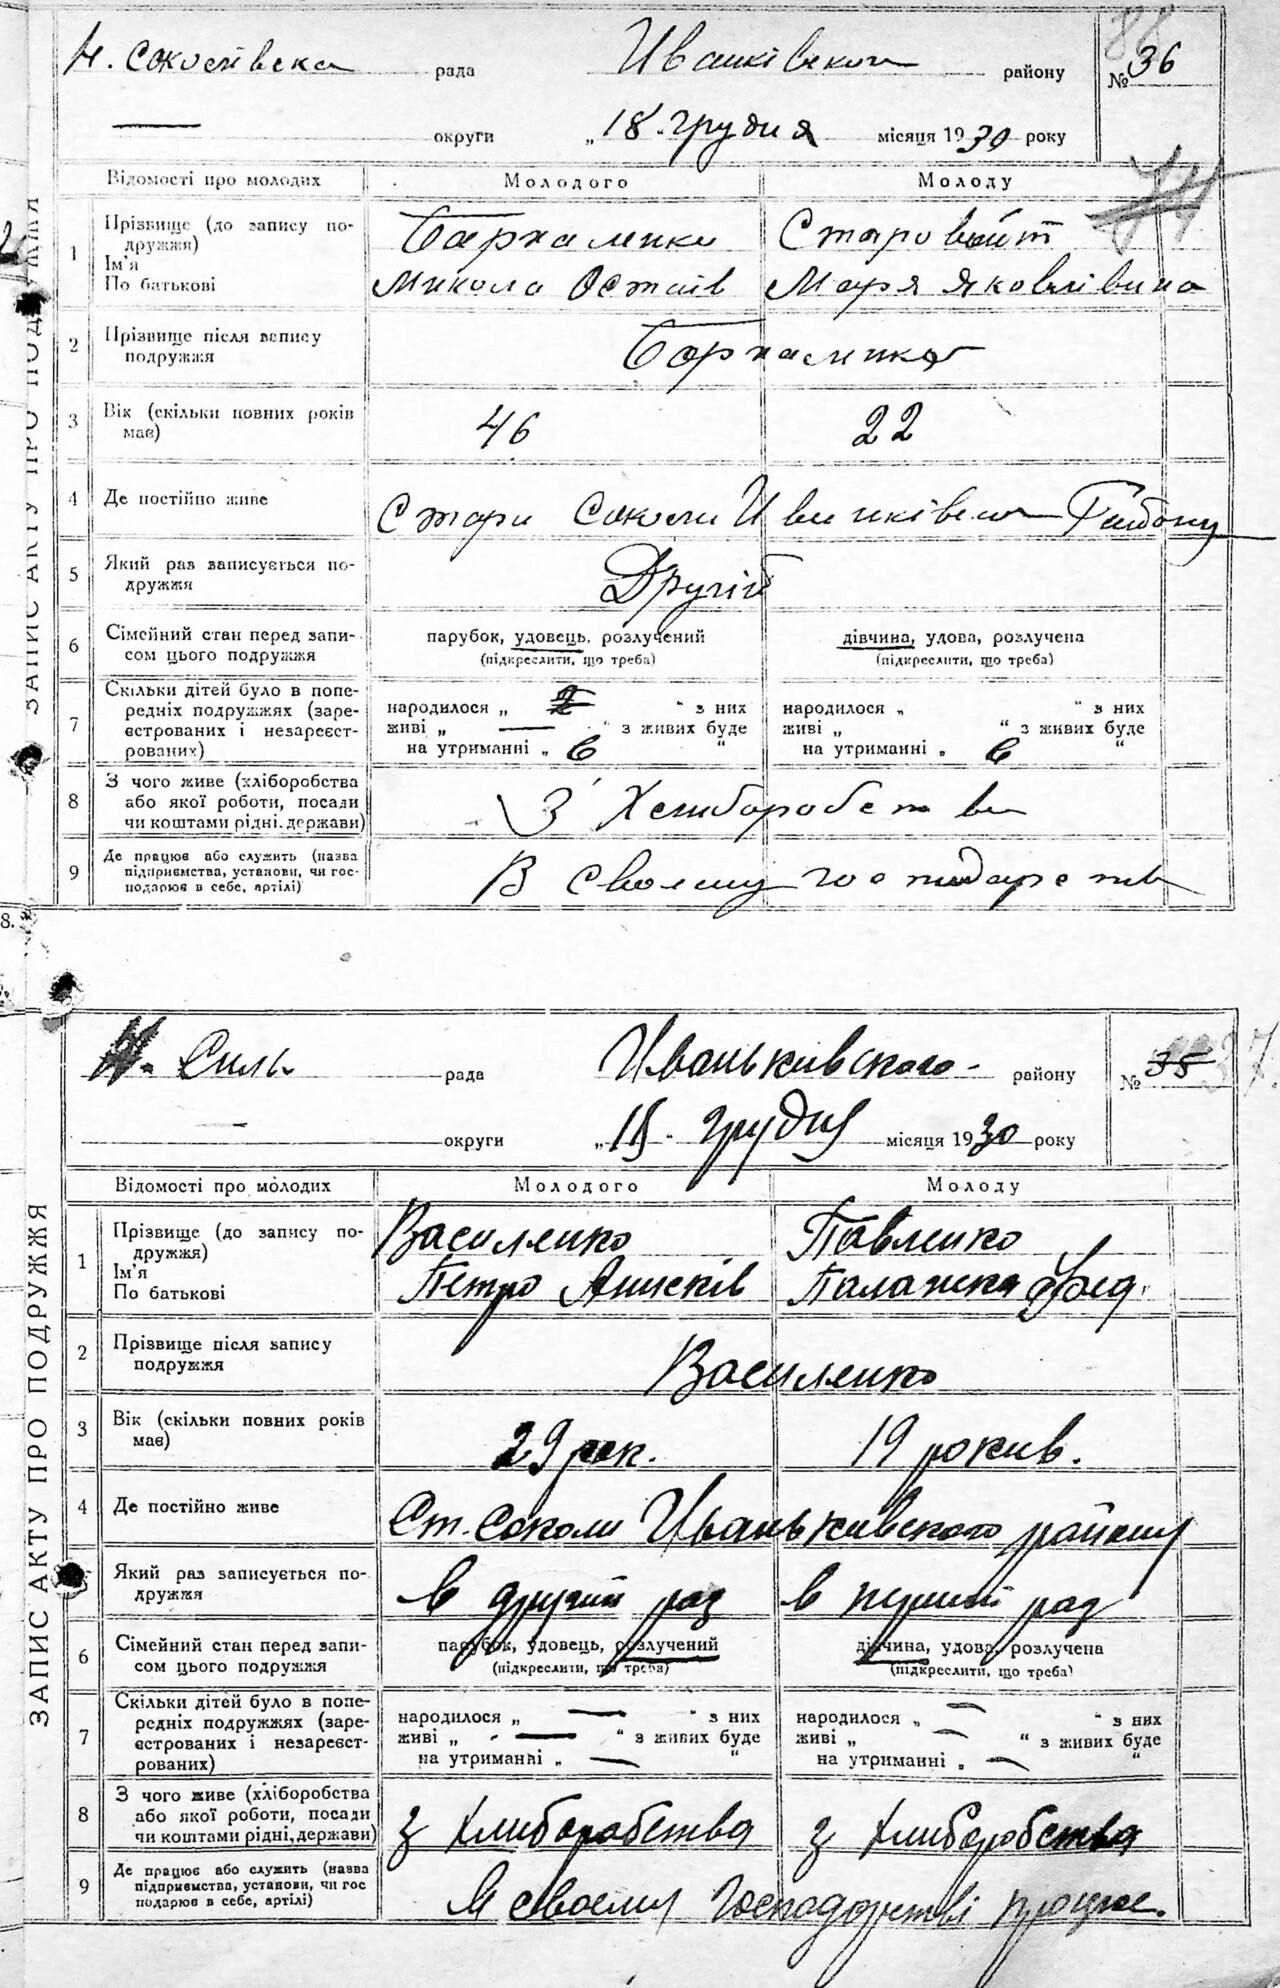 Н. Соколівска рада Иванківского району № 36
округи „18 грудня місяця 1930 року
Відомості про молодих Молодого Молоду
ЗАПИС АКТУ ПРО ПОДРУЖЖЯ
1 Прізвище (до запису по-
дружжя)
Ім'я
По батькові
Пархоменко Старовойт
Микола Остапів Марія Яковлівна
2 Прізвище після запису
подружжя
Пархоменко
3 Вік (скільки повних років
має)
46 22
4 Де постійно живе
Стари Соколи Иванківського Району
5 Який раз записується по-
дружжя
Другий
6 Сімейний стан перед запи-
сом цього подружжя
парубок, удовець, розлучений дівчина, удова, розлучена
(підкреслити, що треба) (підкреслити, що треба)
7 Скільки дітей було в попе-
редніх подружжях (заре-
єстрованих і незареєст-
рованих)
народилося „ “ з них народилося „ “ з них
живі „ — “ з живих буде живі „ “ з живих буде
на утриманні „ “ на утриманні „ “
8 З чого живе (хліборобства
або якої роботи, посади
чи коштами рідні, держави)
З Хлиборобства
9 Де працює або служить (назва
підприємства, установи, чи гос-
подарює в себе, артілі)
В своему господарстві
8.
Н. Силь. рада Иваньковского району № 35 37.
округи „18 грудня місяця 1930 року
Відомості про молодих Молодого Молоду
ЗАПИС АКТУ ПРО ПОДРУЖЖЯ
1 Прізвище (до запису по-
дружжя)
Ім'я
По батькові
Василенко Павленко
Петро Палажка Фед.
2 Прізвище після запису
подружжя
Василенко
3 Вік (скільки повних років
має)
29 рок. 19 рокив.
4 Де постійно живе
Ст. Соколи Иваньковского району
Який раз записується по-
дружжя
в другий раз в перший раз
6 Сімейний стан перед запи-
сом цього подружжя
парубок, удовець, розлучений дівчина, удова, розлучена
(підкреслити, що треба) (підкреслити, що треба)
7 Скільки дітей було в попе-
редніх подружжях (заре-
єстрованих і незареєст-
рованих)
народилося „ — “ з них народилося „ — “ з них
живі „ — “ з живих буде живі „ — “ з живих буде
на утриманні „ — “ на утриманні „ — “
8 З чого живе (хліборобства
або якої роботи, посади
чи коштами рідні, держави)
з хлиборобства з хлиборобства
9 Де працює або служить (назва
підприємства, установи, чи гос
подарює в себе, артілі)
своему господарстві працює.